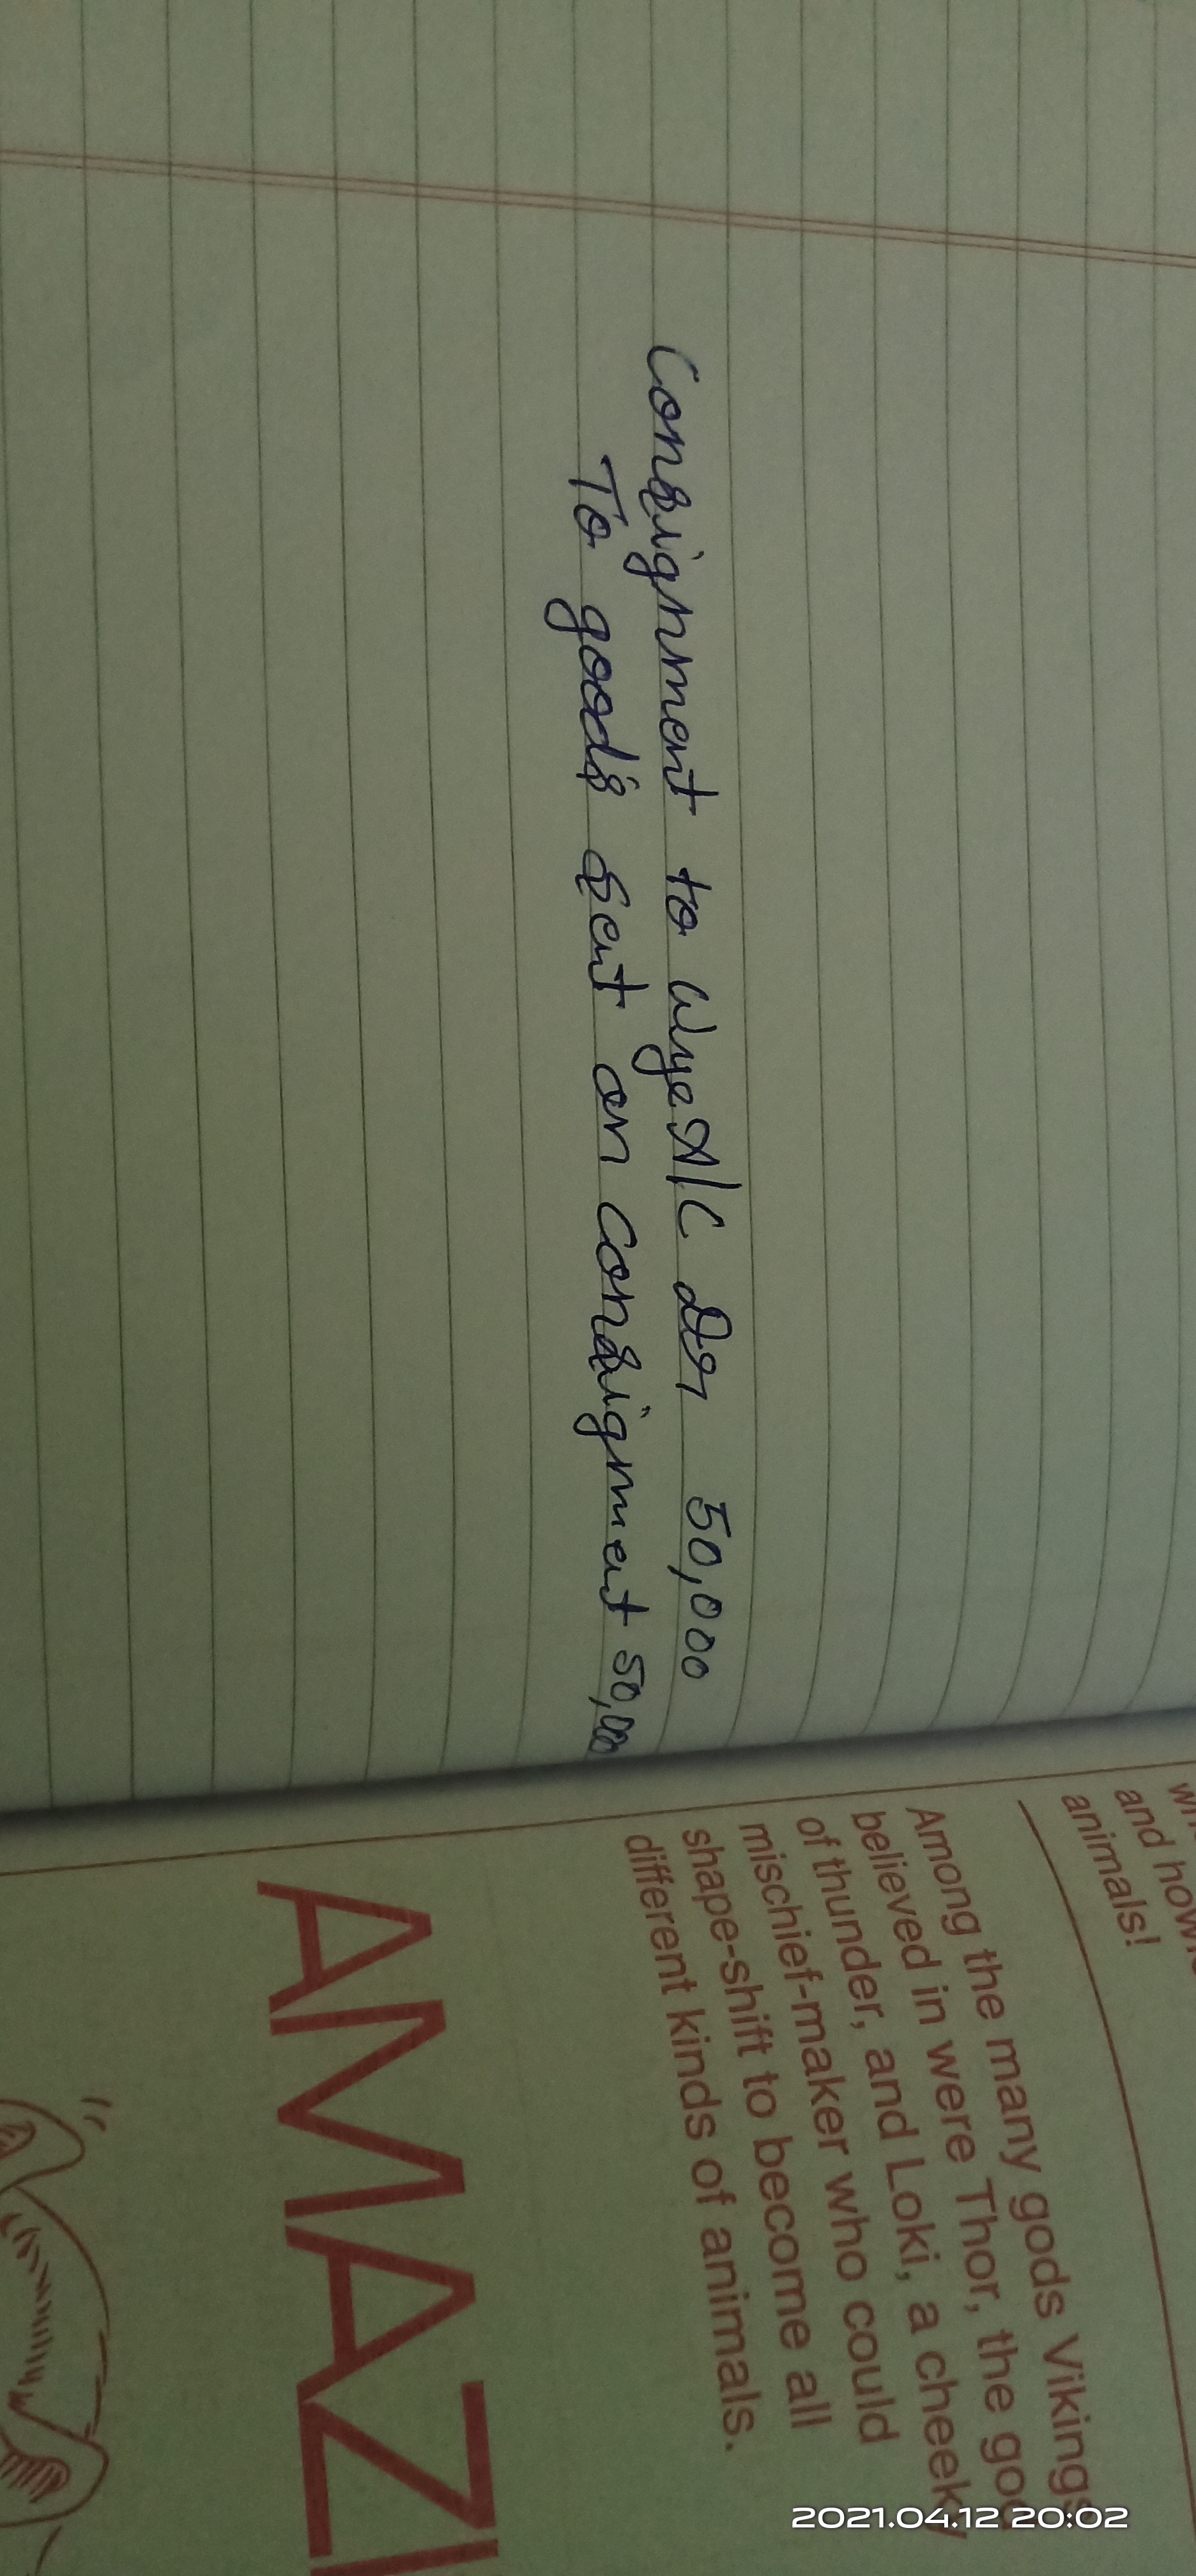 Consignment to Wye A/C Dr 50,000
To goods Sent on Consigment 50,000
and how
animals!
Among the many gods Vikings
believed in were Thor, the god
of thunder, and Loki, a cheeky
mischief-maker who could
shape-shift to become all
different kinds of animals.
AMAZI
2021.04.12 20:02